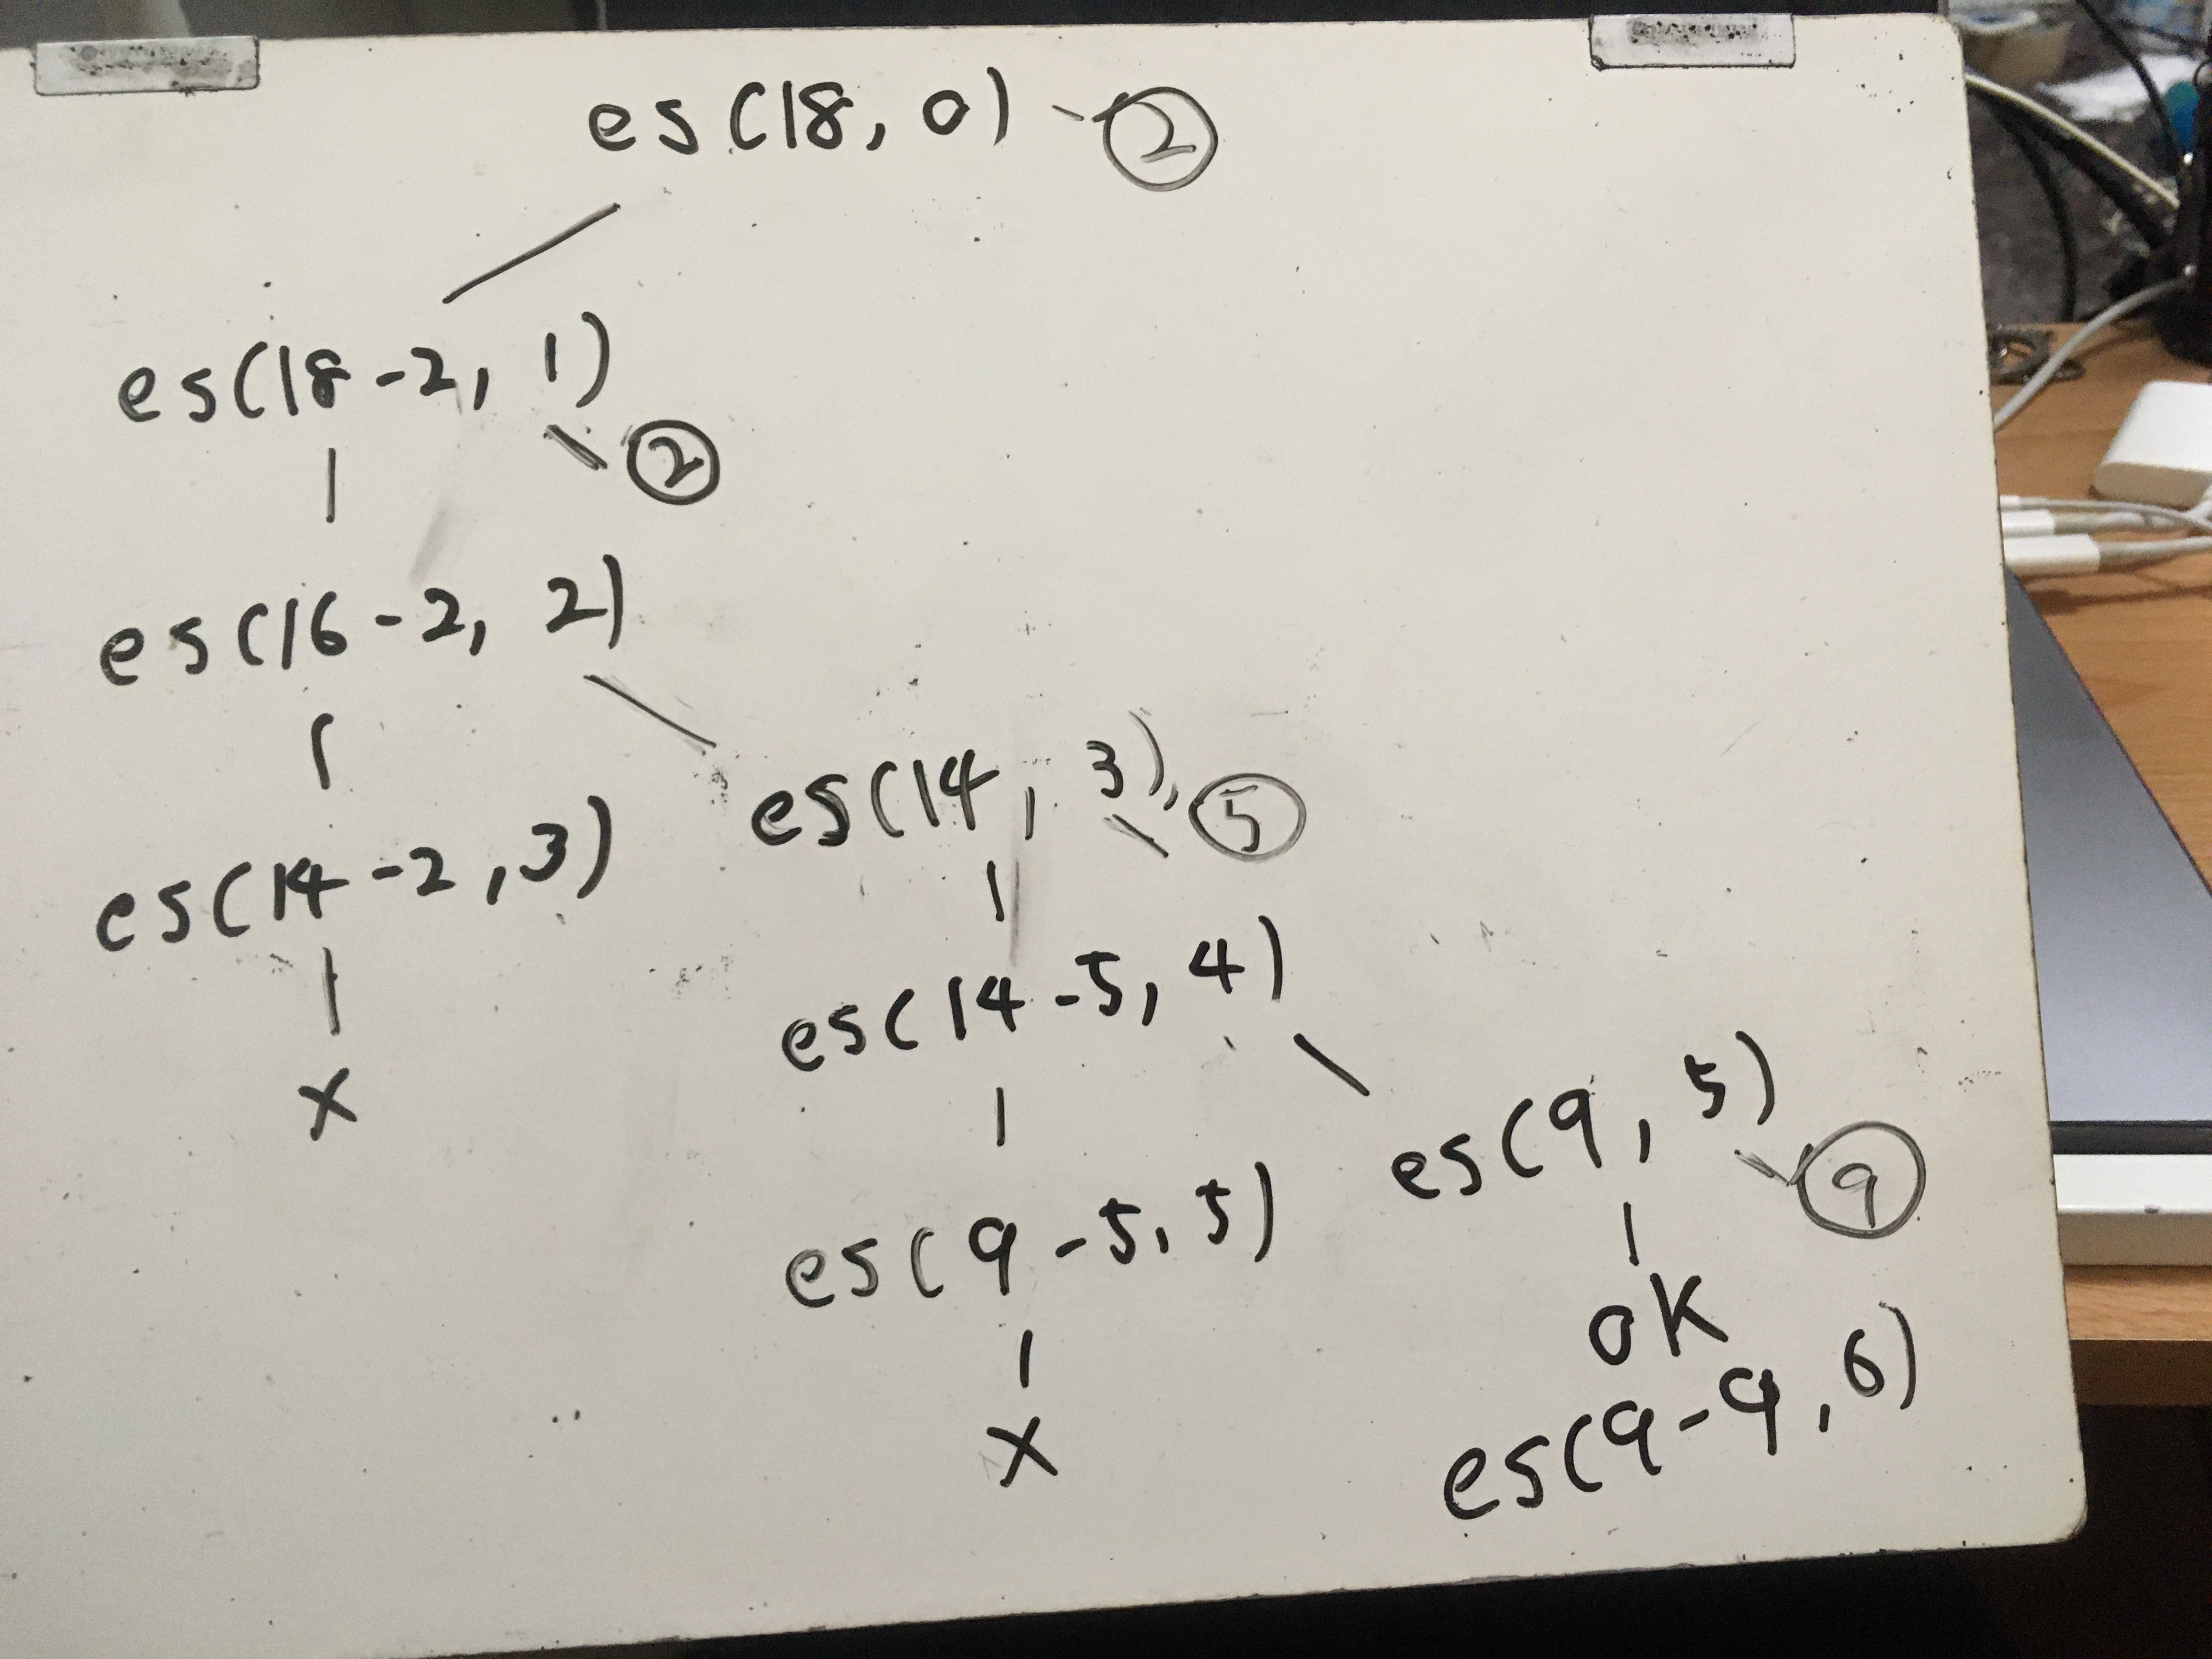 es(18, 0) ②
es(18-2, 1)
②
es(16-2, 2)
es(14, 3), ⑤
es(14-2, 3)
es(14-5, 4)
x
es(9, 5)
⑨
es(9-5, 5)
OK
x
es(9-9, 6)